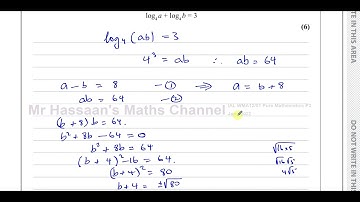 log₄ a + log₄ b = 3
(6)
log₄(ab) = 3
4³ = ab ∴ ab = 64
a - b = 8 —① ⇒ a = b + 8
ab = 64 —②
Mr Hassaan's Maths Channel
(b + 8) b = 64.
b² + 8b - 64 = 0
b² + 8b = 64
(b + 4)² - 16 = 64.
(b + 4)² = 80
b + 4 = ±√80
√16×5
√16 √5
4√5
DO NOT WRITE IN THIS